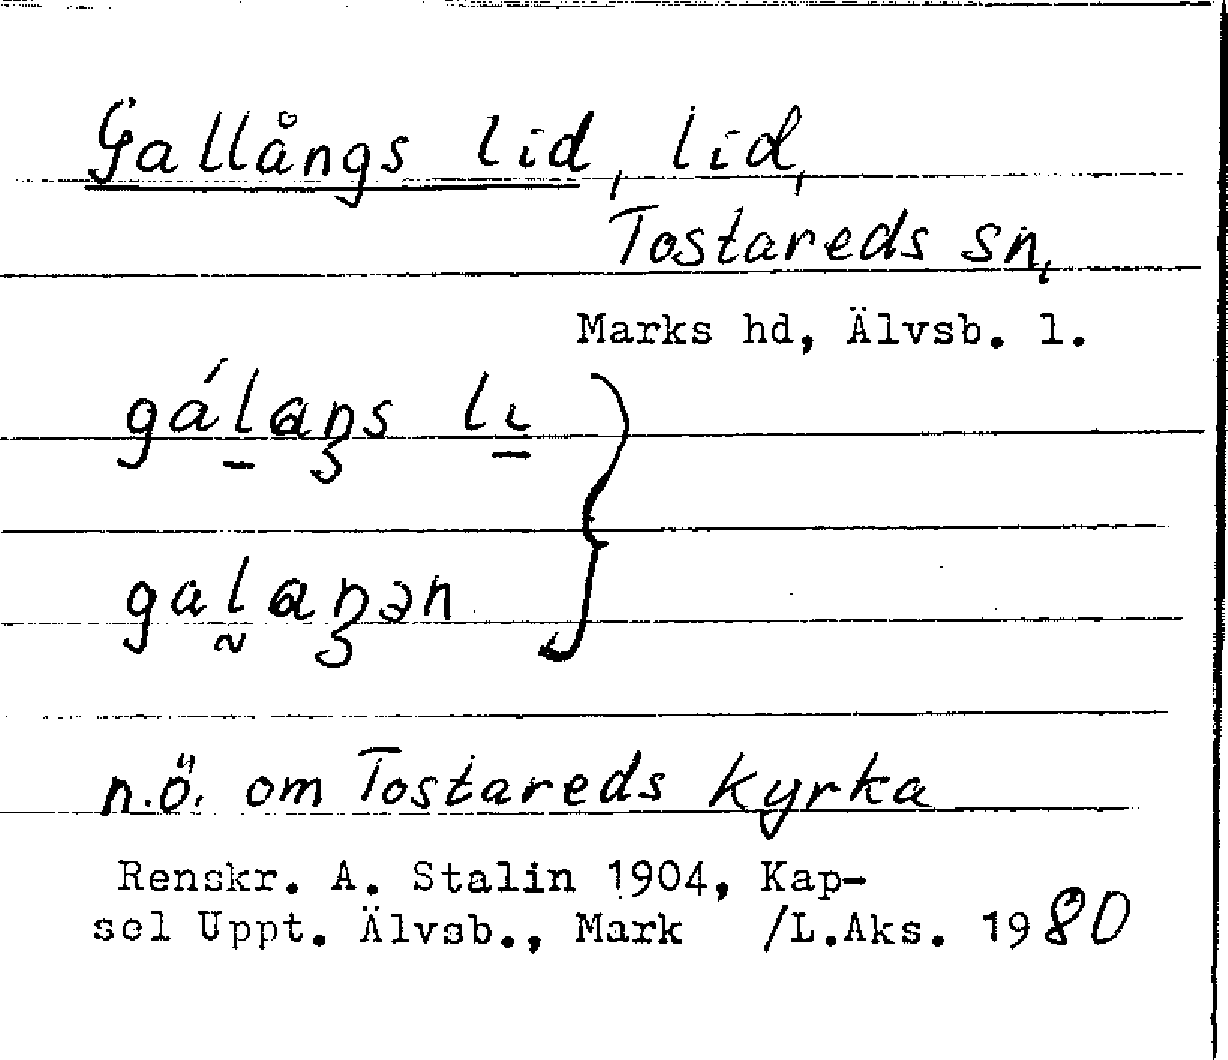 Gallångs lid, lid,
Tostareds sn,
Marks hd, Älvsb. l.
gál̠aŋs lɩ̠
gal̰aŋən
n.ö. om Tostareds kyrka
Renskr. A. Stalin 1904, Kap-
sel Uppt. Älvsb., Mark /L.Aks. 1980